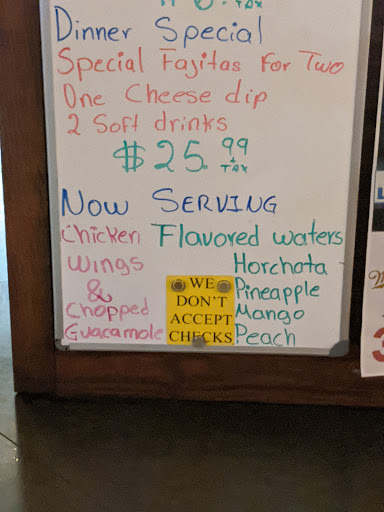 Dinner Special
Special Fajitas For Two
One Cheese dip
2 Soft drinks
$25.99 + TAX
Now SERVING
Chicken Wings & Chopped Guacamole
Flavored waters
Horchata
Pineapple
Mango
Peach
WE
DON'T
ACCEPT
CHECKS